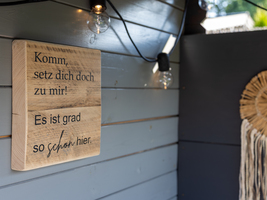 Komm,
setz dich doch
zu mir!
Es ist grad
so schön hier.